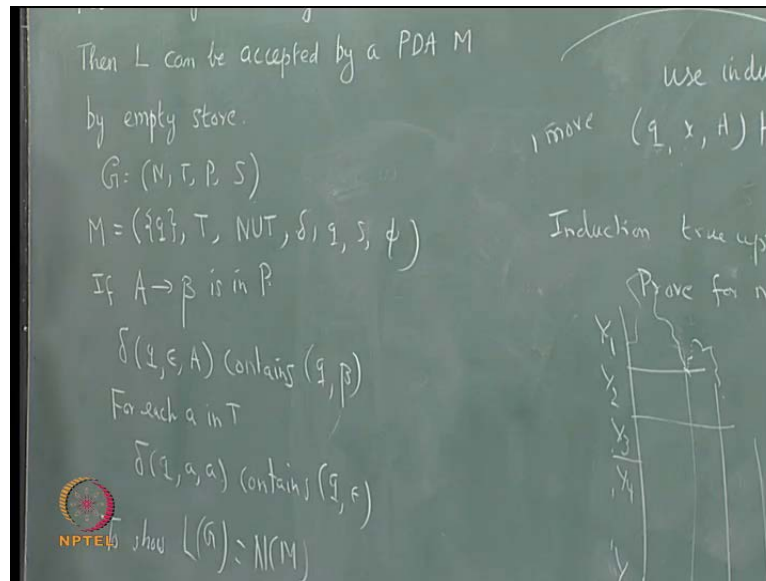 Then L can be accepted by a PDA M
by empty store.
G = (N, T, P, S)
M = ({q}, T, NUT, δ, q, S, ϕ)
If A → β is in P.
δ(q, ε, A) contains (q, β)
For each a in T
δ(q, a, a) contains (q, ε)
To show L(G) = N(M)
NPTEL
use indu
1 move (q, x, A) ⊢
Induction true upt
Prove for n
Y₁
Y₂
Y₃
Y₄
Y